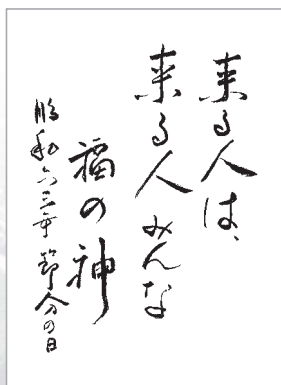 来る人は、
来る人みんな
福の神
昭和六三年 節分の日